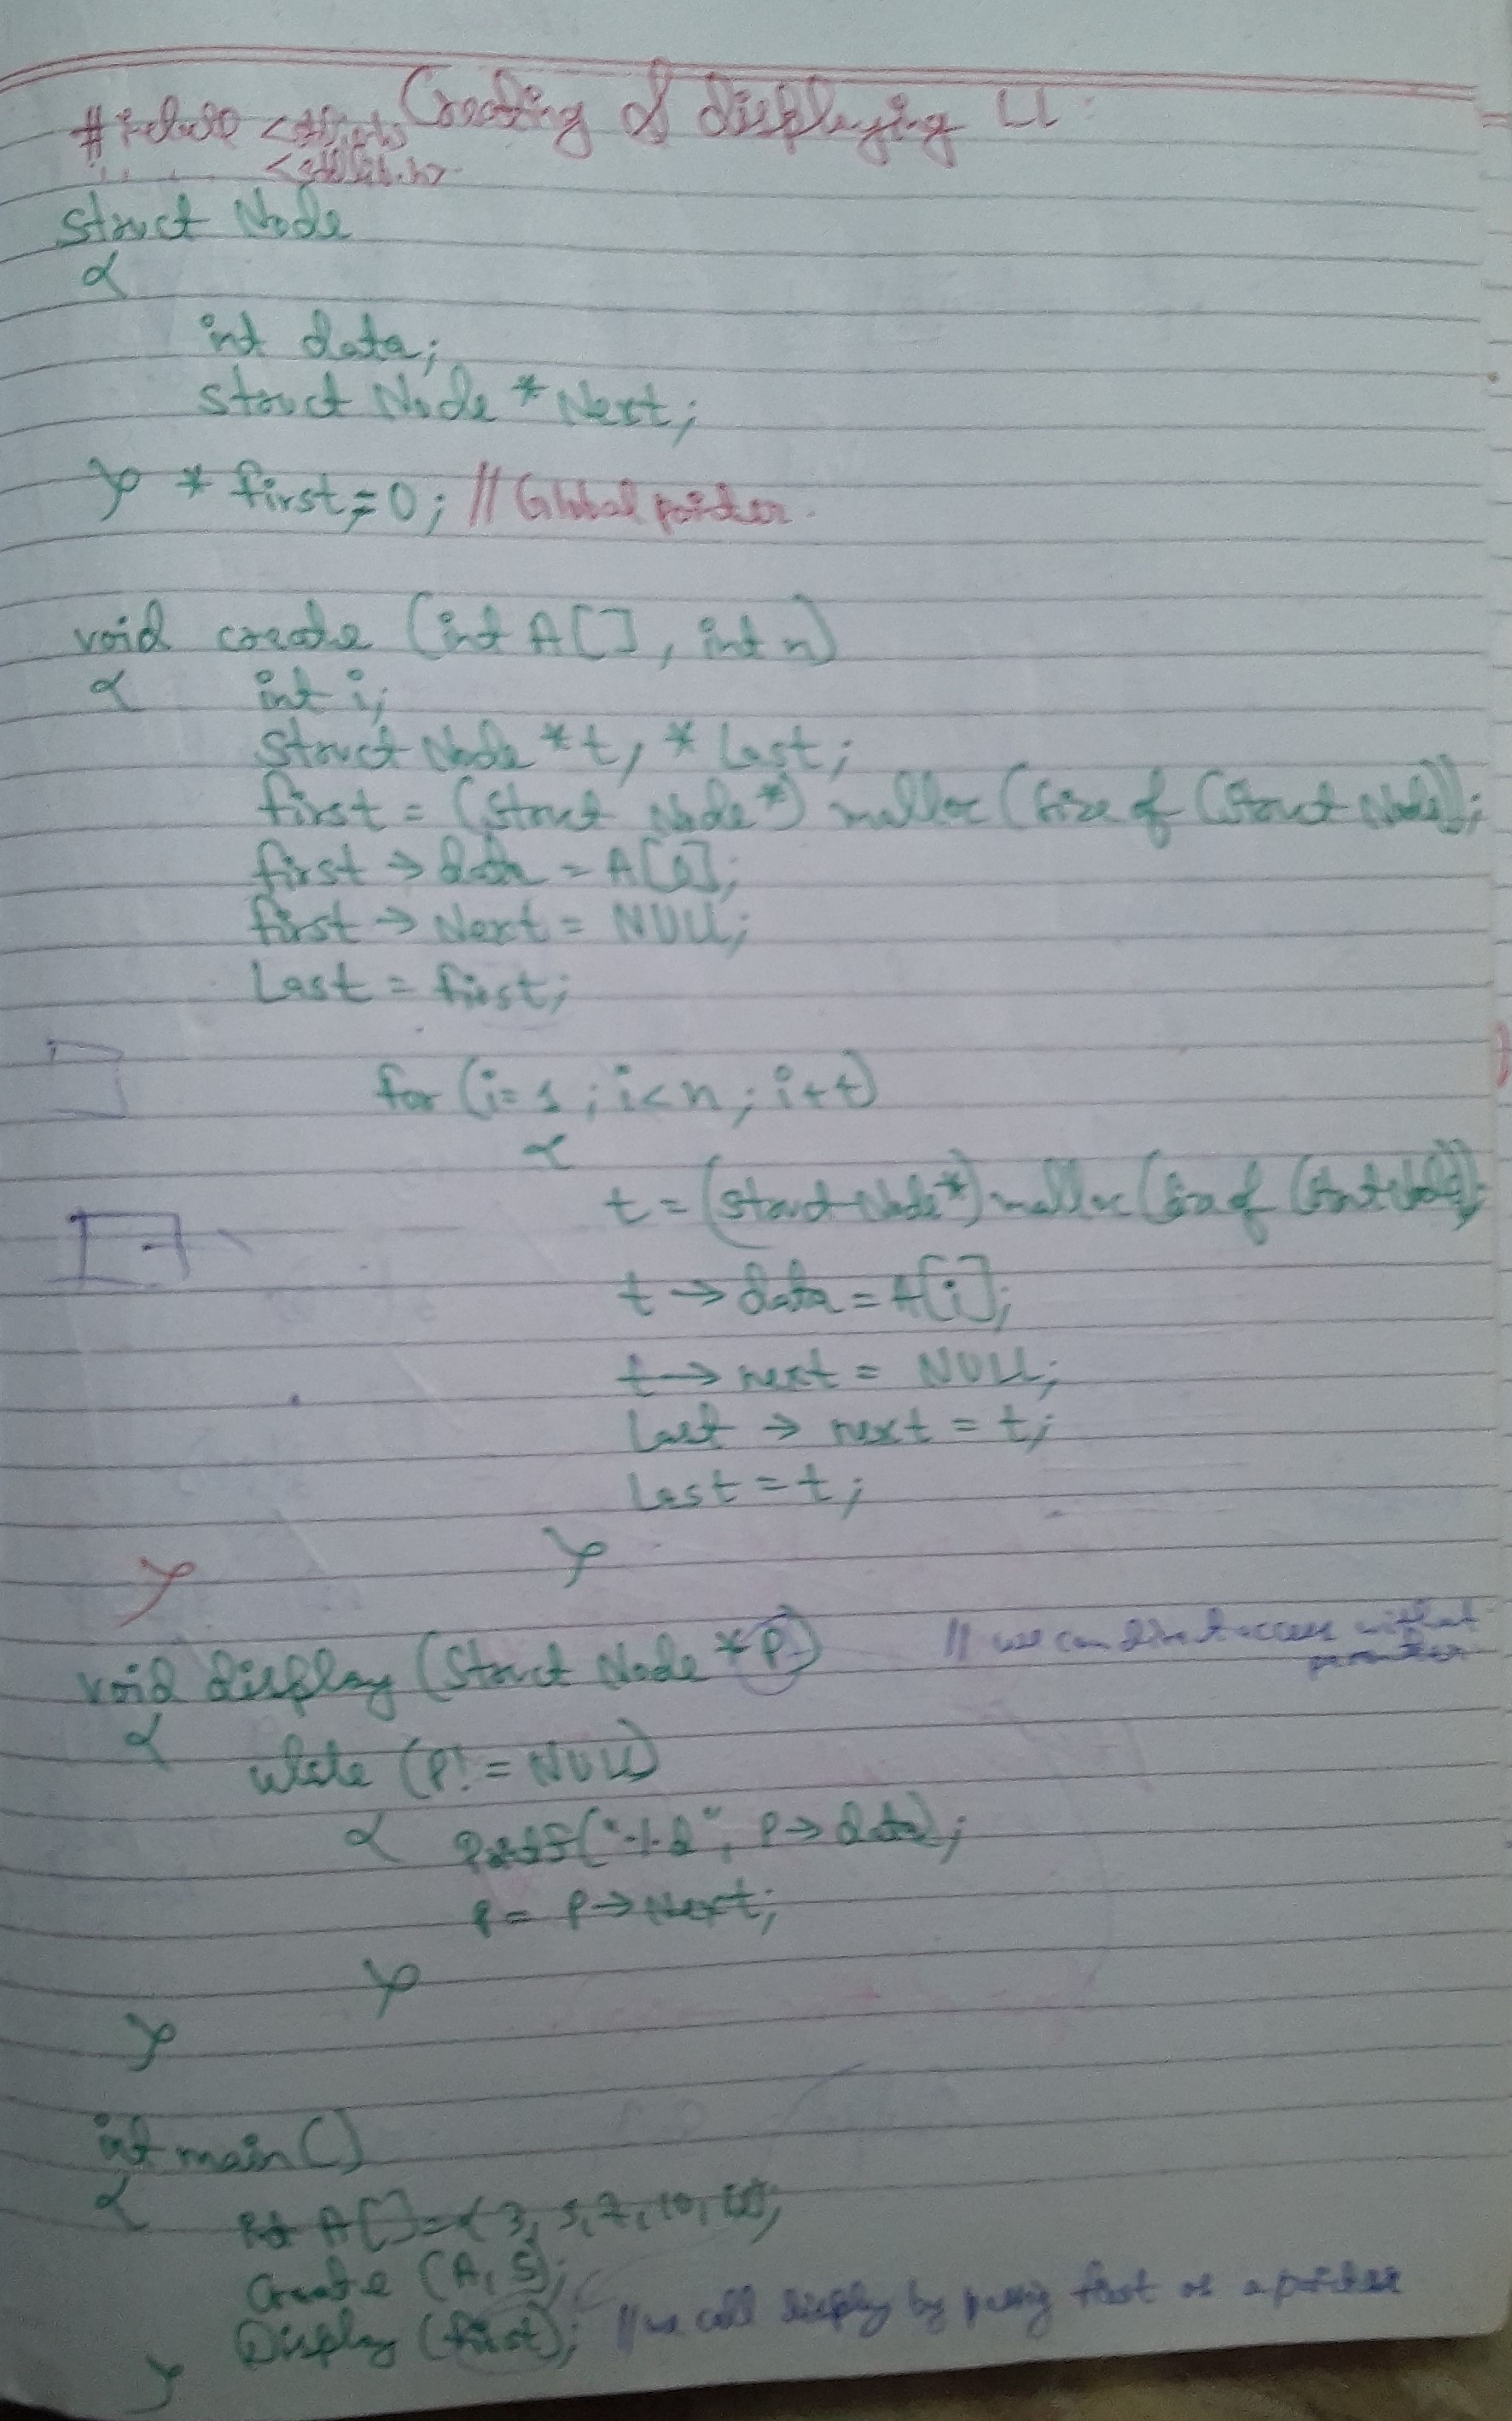 Creating & displaying LL:
#include <stdio.h>
<stdlib.h>
struct Node
{
int data;
struct Node * Next;
} * first = 0; // Global pointer.
void create (int A[], int n)
{ int i;
struct Node *t, * Last;
first = (struct Node*) malloc (size of (struct Node));
first → data = A[0];
first → Next = NULL;
Last = first;
for (i=1; i<n; i++)
{
t = (struct Node*) malloc (size of (struct Node));
t → data = A[i];
t → next = NULL;
Last → next = t;
Last = t;
}
}
void display (struct Node *P) // we can direct access without
parameter
{ while (P! = NULL)
{ printf("%d", P→data);
P = P→Next;
}
}
int main()
{ int A[]={3, 5, 7, 10,
Create (A, 5);
Display (first); // we call display by passing first as a pointer
}